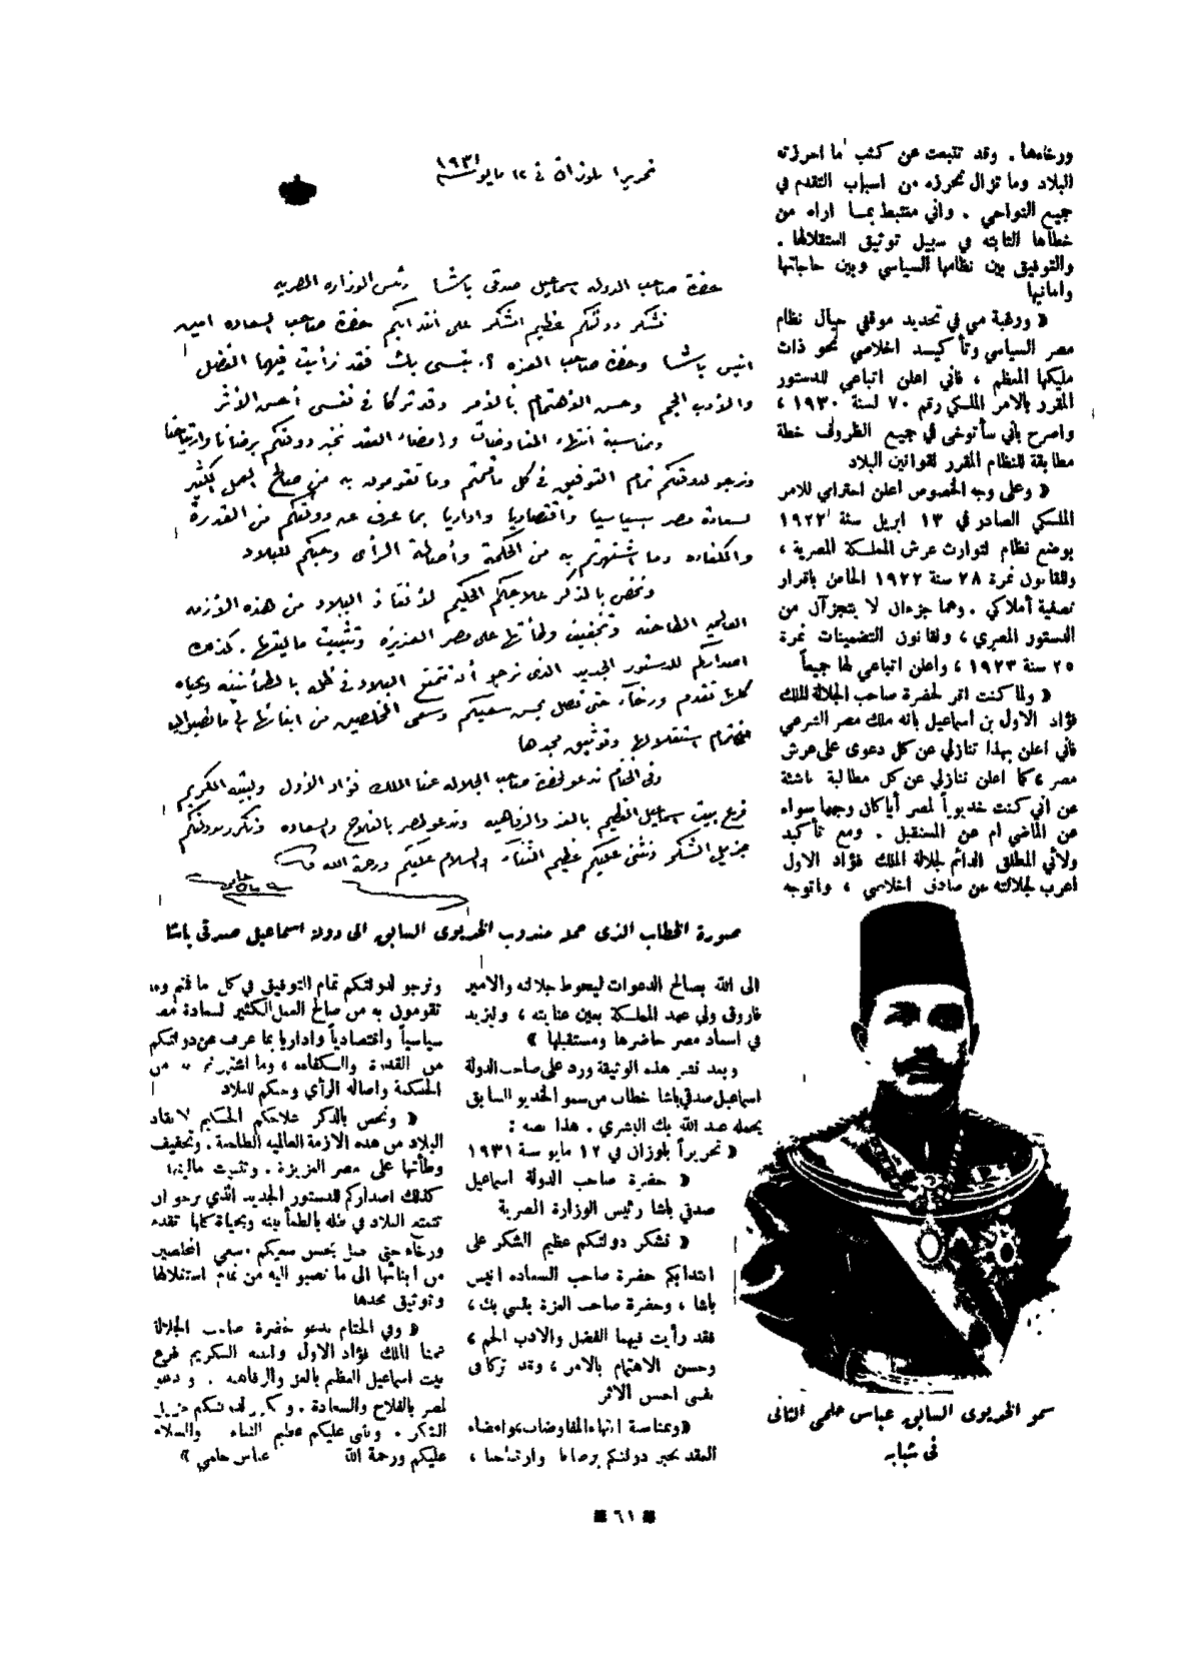 ورخاءها . وقد تتبعت عن كثب ما احرزته
البلاد وما تزال تحرزه من اسباب التقدم في
جميع النواحي . واني مغتبط بمـا اراه من
خطاها الثابته في سبيل توثيق استقلالها .
والتوفيق بين نظامها السياسي وبين حاجاتها
وامانيها
« ورغبة مني في تحديد موقفي حيال نظام
مصر السياسي وتأكيـد اخلاصي نحو ذات
مليكها المعظم ، فاني اعلن اتباعي للدستور
المقرر بالامر الملكي رقم ٧٠ لسنة ١٩٣٠ ،
واصرح باني سأتوخى في جميع الظروف خطة
مطابقة للنظام المقرر لقوانين البلاد
« وعلى وجه الخصوص اعلن احترامي للامر
الملكي الصادر في ١٣ ابريل سنة ١٩٢٢
بوضع نظام لتوارث عرش المملكة المصرية ،
وللقانون نمرة ٢٨ سنة ١٩٢٢ الخاص باقرار
تصفية أملاكي . وهما جزءان لا يتجزآن من
الدستور المصري ، ولقانون التضمينات نمرة
٢٥ سنة ١٩٢٣ ، واعلن اتباعي لها جميعاً
« ولما كنت اقر لحضرة صاحب الجلالة الملك
فؤاد الاول بن اسماعيل بانه ملك مصر الشرعي
فاني اعلن بهذا تنازلي عن كل دعوى على عرش
مصر ، كما اعلن تنازلي عن كل مطالبة ناشئة
عن اني كنت خديوياً لمصر أياكان وجهها سواء
عن الماضي ام عن المستقبل . ومع تأكيد
ولائي المطلق الدائم لجلالة الملك فؤاد الاول
اعرب لجلالته عن صادق اخلاصي ، واتوجه
تحريرا بلوزان في ١٢ مايو سنة ١٩٣١
حضرة صاحب الدولة اسماعيل صدقى باشا رئيس الوزاره المصريه
نشكر دولتكم عظيم الشكر على انتدابكم حضرة صاحب السعاده امين
انيس باشا وحضرة صاحب العزه يقسى بك فقد رأيت فيهما الفضل
والأدب الجم وحسن الاهتمام بالأمر وقد تركا في نفسى أحسن الأثر
وبمناسبة انتهاء المفاوضات وامضاء العقد نخبر دولتكم برضانا وارتياحنا
ونرجو لدولتكم تمام التوفيق في كل ما قمتم وما تقومون به من صالح العمل الكثير
لسعادة مصر سياسيا واقتصاديا واداريا بما عرف عن دولتكم من القدرة
والكفاءه وما اشتهرتم به من الحكمة وأصالة الرأى وحبكم للبلاد
ونخص بالذكر علاجكم الحكيم لانقاذ البلاد من هذه الأزمه
العالميه الطاحنه وتخفيف وطأتها على مصر العزيزه وتثبيت ماليتها . كذلك
اصداركم للدستور الجديد الذى نرجو أن تتمتع البلاد في ظله بالطمأنينه وبحياه
كلها تقدم ورخآء حتى تصل بحسن سعيكم وسعى المخلصين من ابنائها الى ما تصبو اليه
من تمام استقلالها وتوثيق مجدها
وفى الختام ندعو لحضرة صاحب الجلاله عمنا الملك فؤاد الأول ولبيته الكريم
فرع بيت اسماعيل العظيم بالعز والرفاهيه وندعو لمصر بالفلاح والسعاده ونكرر لدولتكم
جزيل الشكر ونثنى عليكم عظيم الثنآء والسلام عليكم ورحمة الله
عباس حلمى
صورة الخطاب الذى حمله مندوب الخديوى السابق الى دولة اسماعيل صدقى باشا
الى الله بصالح الدعوات ليحوط جلالته والامير
فاروق ولي عهد المملكة بعين عنايته ، وليزيد
في اسعاد مصر حاضرها ومستقبلها »
وبعد نشر هذه الوثيقة ورد على صاحب الدولة
اسماعيل صدقي باشا خطاب من سمو الخديو السابق
يحمله عبد الله بك البشري . هذا نصه :
« تحريراً بلوزان في ١٢ مايو سنة ١٩٣١
« حضرة صاحب الدولة اسماعيل
صدقي باشا رئيس الوزارة المصرية
« نشكر دولتكم عظيم الشكر على
انتدابكم حضرة صاحب السعاده انيس
باشا ، وحضرة صاحب العزة يقسي بك ،
فقد رأيت فيهما الفضل والادب الجم ،
وحسن الاهتمام بالامر ، وقد تركا في
نفسي احسن الاثر
« وبمناسبة انتهاء المفاوضات وامضاء
العقد نخبر دولتكم برضانا وارتياحنا ،
ونرجو لدولتكم تمام التوفيق في كل ما قمتم وما
تقومون به من صالح العمل الكثير لسعادة مصر
سياسياً واقتصادياً واداريا بما عرف عن دولتكم
من القدرة والكفاءه ، وما اشتهرتم به من
الحكمة واصاله الرأي وحبكم للبلاد
« ونخص بالذكر علاجكم الحكيم لانقاذ
البلاد من هذه الازمة العالميه الطاحنة . وتخفيف
وطأتها على مصر العزيزة . وتثبيت ماليتها
كذلك اصداركم للدستور الجديد الذي نرجو ان
تتمتع البلاد في ظله بالطمأنينه وبحياة كلها تقدم
ورخآء حتى تصل بحسن سعيكم وسعي المخلصين
من ابنائها الى ما تصبو اليه من تمام استقلالها
وتوثيق مجدها
« وفي الختام ندعو لحضرة صاحب الجلالة
عمنا الملك فؤاد الاول ولبيته الكريم فرع
بيت اسماعيل العظيم بالعز والرفاهيه . وندعو
لمصر بالفلاح والسعادة . ونكرر لدولتكم جزيل
الشكر . ونثني عليكم عظيم الثناء والسلام
عليكم ورحمة الله عباس حلمي »
سمو الخديوى السابق عباس حلمى الثانى
فى شبابه
٦١